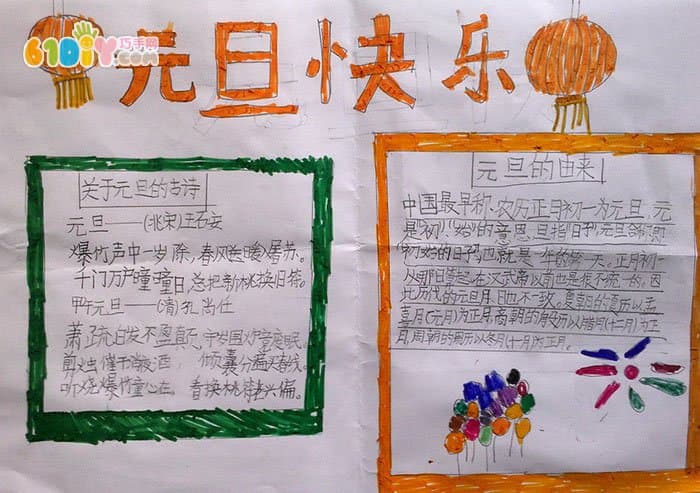 61DIY巧手网
.com
元旦快乐
关于元旦的古诗
元旦——(北宋)王石安
爆竹声中一岁除,春风送暖入屠苏。
千门万户瞳瞳日,总把新桃换旧符。
甲午元旦——(清)孔尚任
萧疏白发不盈颠,守岁围炉竟废眠。
剪烛催干消夜酒,倾囊分遍买春钱。
听烧爆竹童心在,看换桃符老兴偏。
元旦的由来
中国最早积农历正月初一为元旦,元
是"初""始"的意思,旦指"日子",元旦合称即
"初始的日子",也就是一年的第一天。正月初一
从哪日算起,在汉武帝以前也是很不统一的。因
此,历代的元旦月、日也不一致。夏朝的夏历以孟
喜月(元月)为正月,商朝的殷历以腊月(十二月)为正
月,周朝的周历以冬月(十一月)为正月。